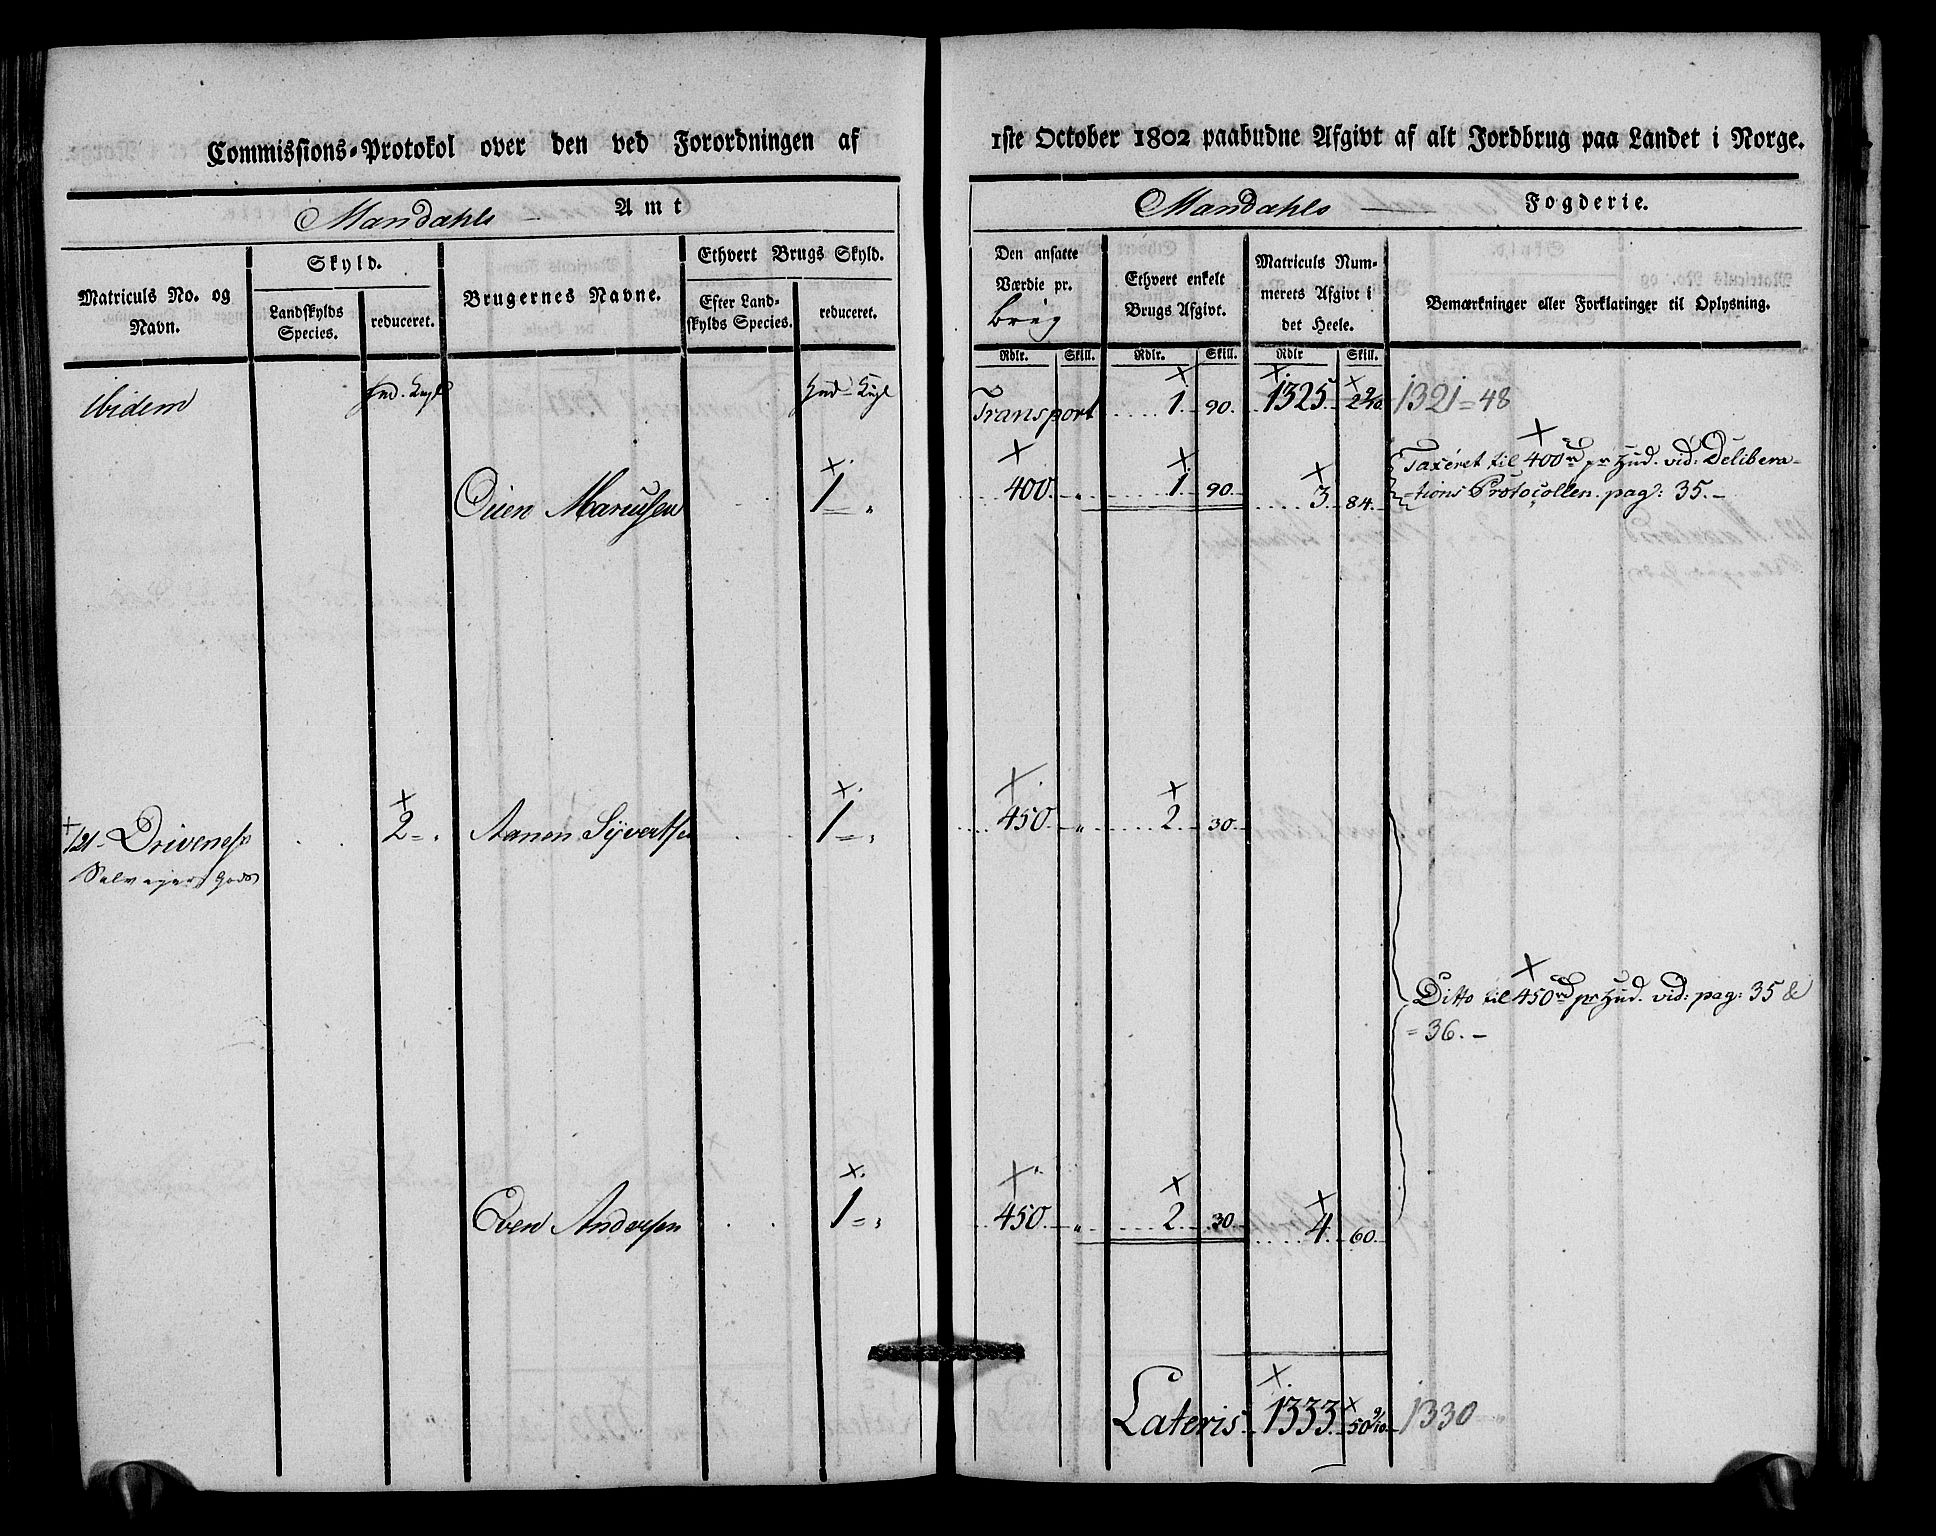 Commissions-Protokol over den ved Forordningen af
1ste October 1802 paabudne Afgivt af alt Jordbrug paa Landet i Norge.
Mandahls — Amt
Mandahls — Fogderie.
Matriculs No. og Navn.
Skyld.
Landskylds Species.
reduceret.
Brugernes Navne.
Ethvert Brugs Skyld.
Efter Landskylds Species.
reduceret.
Den ansatte Værdie pr.
Ethvert enkelt Brugs Afgivt.
Matriculs Nummerets Afgivt i det Heele.
Bemærkninger eller Forklaringer til Oplysning.
Rdlr. Skill. Rdlr. Skill. Rdlr Skill.
ibidem
Transport 1. 90. 1325. 1321=48
1 = „ 400. „ 1. 90. 3. 84.
Taxeret til 400rd pr Hud. vid: Delibera-
tions Protocollen. pag: 35.–
121- Drivenes 2 = „ Aanen Syvertsen 1 = „ 450. „ 2. 30.
Selvejer Gods
Ditto til 450rd pr Hud. vid: pag: 35 &
= 36. –
Even Andersen 1 = „ 450. „ 2. 30. 4. 60.
Lateris 1333. 50 9/10 1330